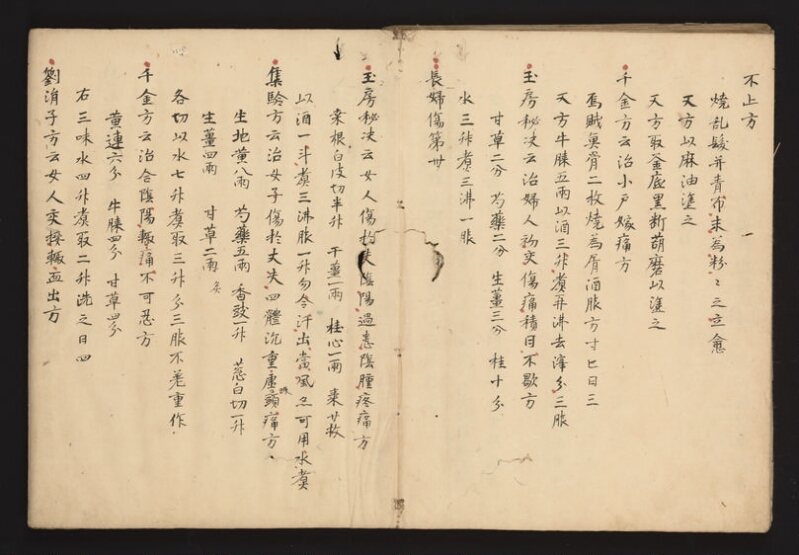 不上方
燒乱髮并青布末爲粉〻之立愈
又方以麻油塗之
又方取釜底黑断葫磨以塗之
千金方云治小戸嫁痛方
烏賊魚骨二枚燒爲屑酒服方寸匕日三
又方牛膝五兩以酒三升煮再沸去滓分三服
玉房秘决云治婦人初交傷痛積日不歇方
甘草二分 芍藥二分 生薑三分 桂十分
水三升煮三沸一服
長婦傷第廿
玉房秘决云女人傷於夫陰陽過患陰腫疼痛方
桑根白皮切半升 干薑一兩 桂心一兩 棗廿枚
以酒一斗煮三沸服一升勿令汗出當風亦可用水煮
集驗方云治女子傷於丈夫四體沉重虚頭痛方
生地黄八兩 芍藥五兩 香豉一升 葱白切一升
生薑四兩 甘草二兩炙
各切以水七升煮取三升分三服不差重作
千金方云治合陰陽輙痛不可忍方
黄連六分 牛膝四分 甘草四分
右三味水四升煮取二升洗之日四
劉涓子方云女人交接輙血出方